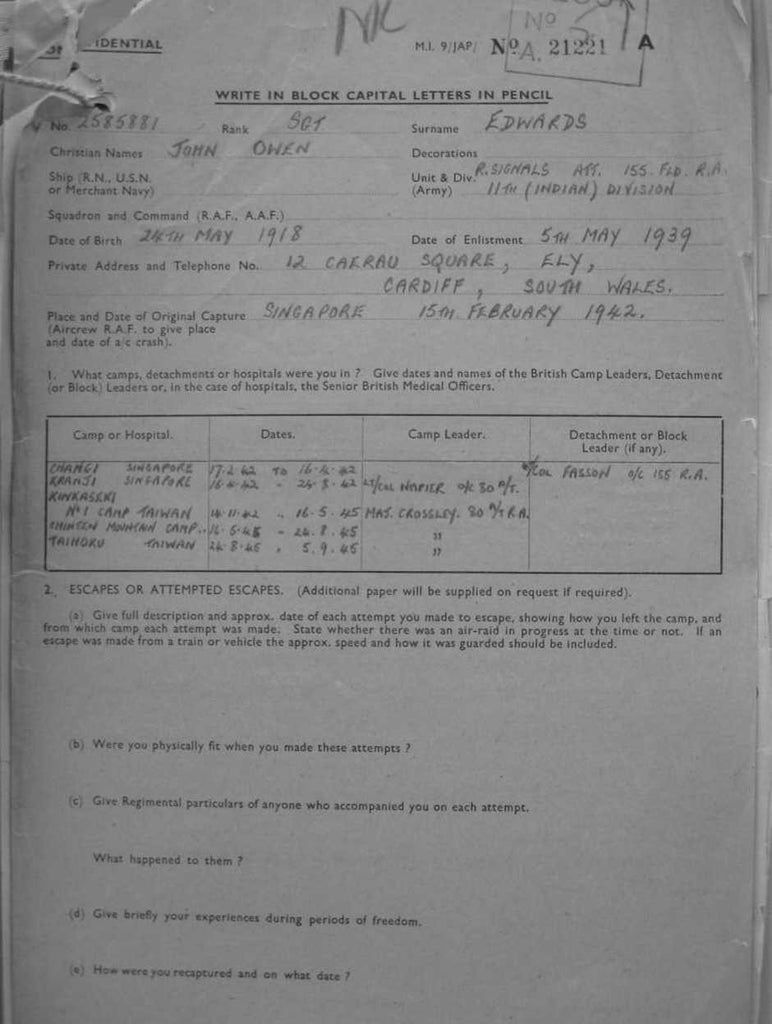 IDENTIAL
NK
M.I. 9/JAP/ No. A. 21221 A
No
WRITE IN BLOCK CAPITAL LETTERS IN PENCIL
No. 2585881 Rank SGT Surname EDWARDS
Christian Names JOHN OWEN Decorations
Ship (R.N., U.S.N. or Merchant Navy)
Unit & Div. (Army) R. SIGNALS ATT. 155 FLD. R.A.
11TH (INDIAN) DIVISION
Squadron and Command (R.A.F., A.A.F.)
Date of Birth 24TH MAY 1918 Date of Enlistment 5TH MAY 1939
Private Address and Telephone No. 12 CAERAU SQUARE, ELY,
CARDIFF, SOUTH WALES.
Place and Date of Original Capture SINGAPORE 15TH FEBRUARY 1942.
(Aircrew R.A.F. to give place
and date of a/c crash).
1. What camps, detachments or hospitals were you in ? Give dates and names of the British Camp Leaders, Detachment
(or Block) Leaders or, in the case of hospitals, the Senior British Medical Officers.
Camp or Hospital. Dates. Camp Leader. Detachment or Block
Leader (if any).
CHANGI SINGAPORE 17.2.42 TO 16.4.42 COL FASSON o/c 155 R.A.
KRANJI SINGAPORE 16.4.42 - 24.8.42 LT/COL NAPIER o/c 80 A/T.
KINKASEKI
No 1 CAMP TAIWAN 14.11.42 .. 16.5.45 MAJ. CROSSLEY. 80 A/T R.A.
MOUNTAIN CAMP.. 16.5.45 - 24.8.45 "
TAIHOKU TAIWAN 24.8.45 " 5.9.45 "
2. ESCAPES OR ATTEMPTED ESCAPES. (Additional paper will be supplied on request if required).
(a) Give full description and approx. date of each attempt you made to escape, showing how you left the camp, and
from which camp each attempt was made. State whether there was an air-raid in progress at the time or not. If an
escape was made from a train or vehicle the approx. speed and how it was guarded should be included.
(b) Were you physically fit when you made these attempts ?
(c) Give Regimental particulars of anyone who accompanied you on each attempt.
What happened to them ?
(d) Give briefly your experiences during periods of freedom.
(e) How were you recaptured and on what date ?